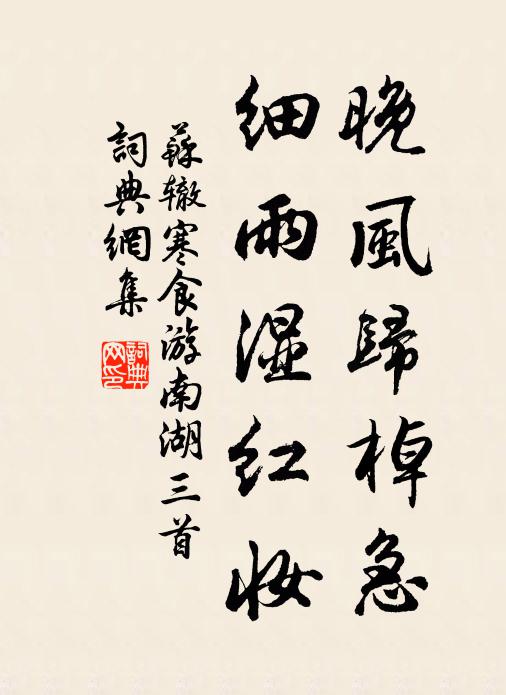 晚風歸棹急
細雨湿红妆
蘇辙寒食游南湖三首
詞典網集
詞典
网印